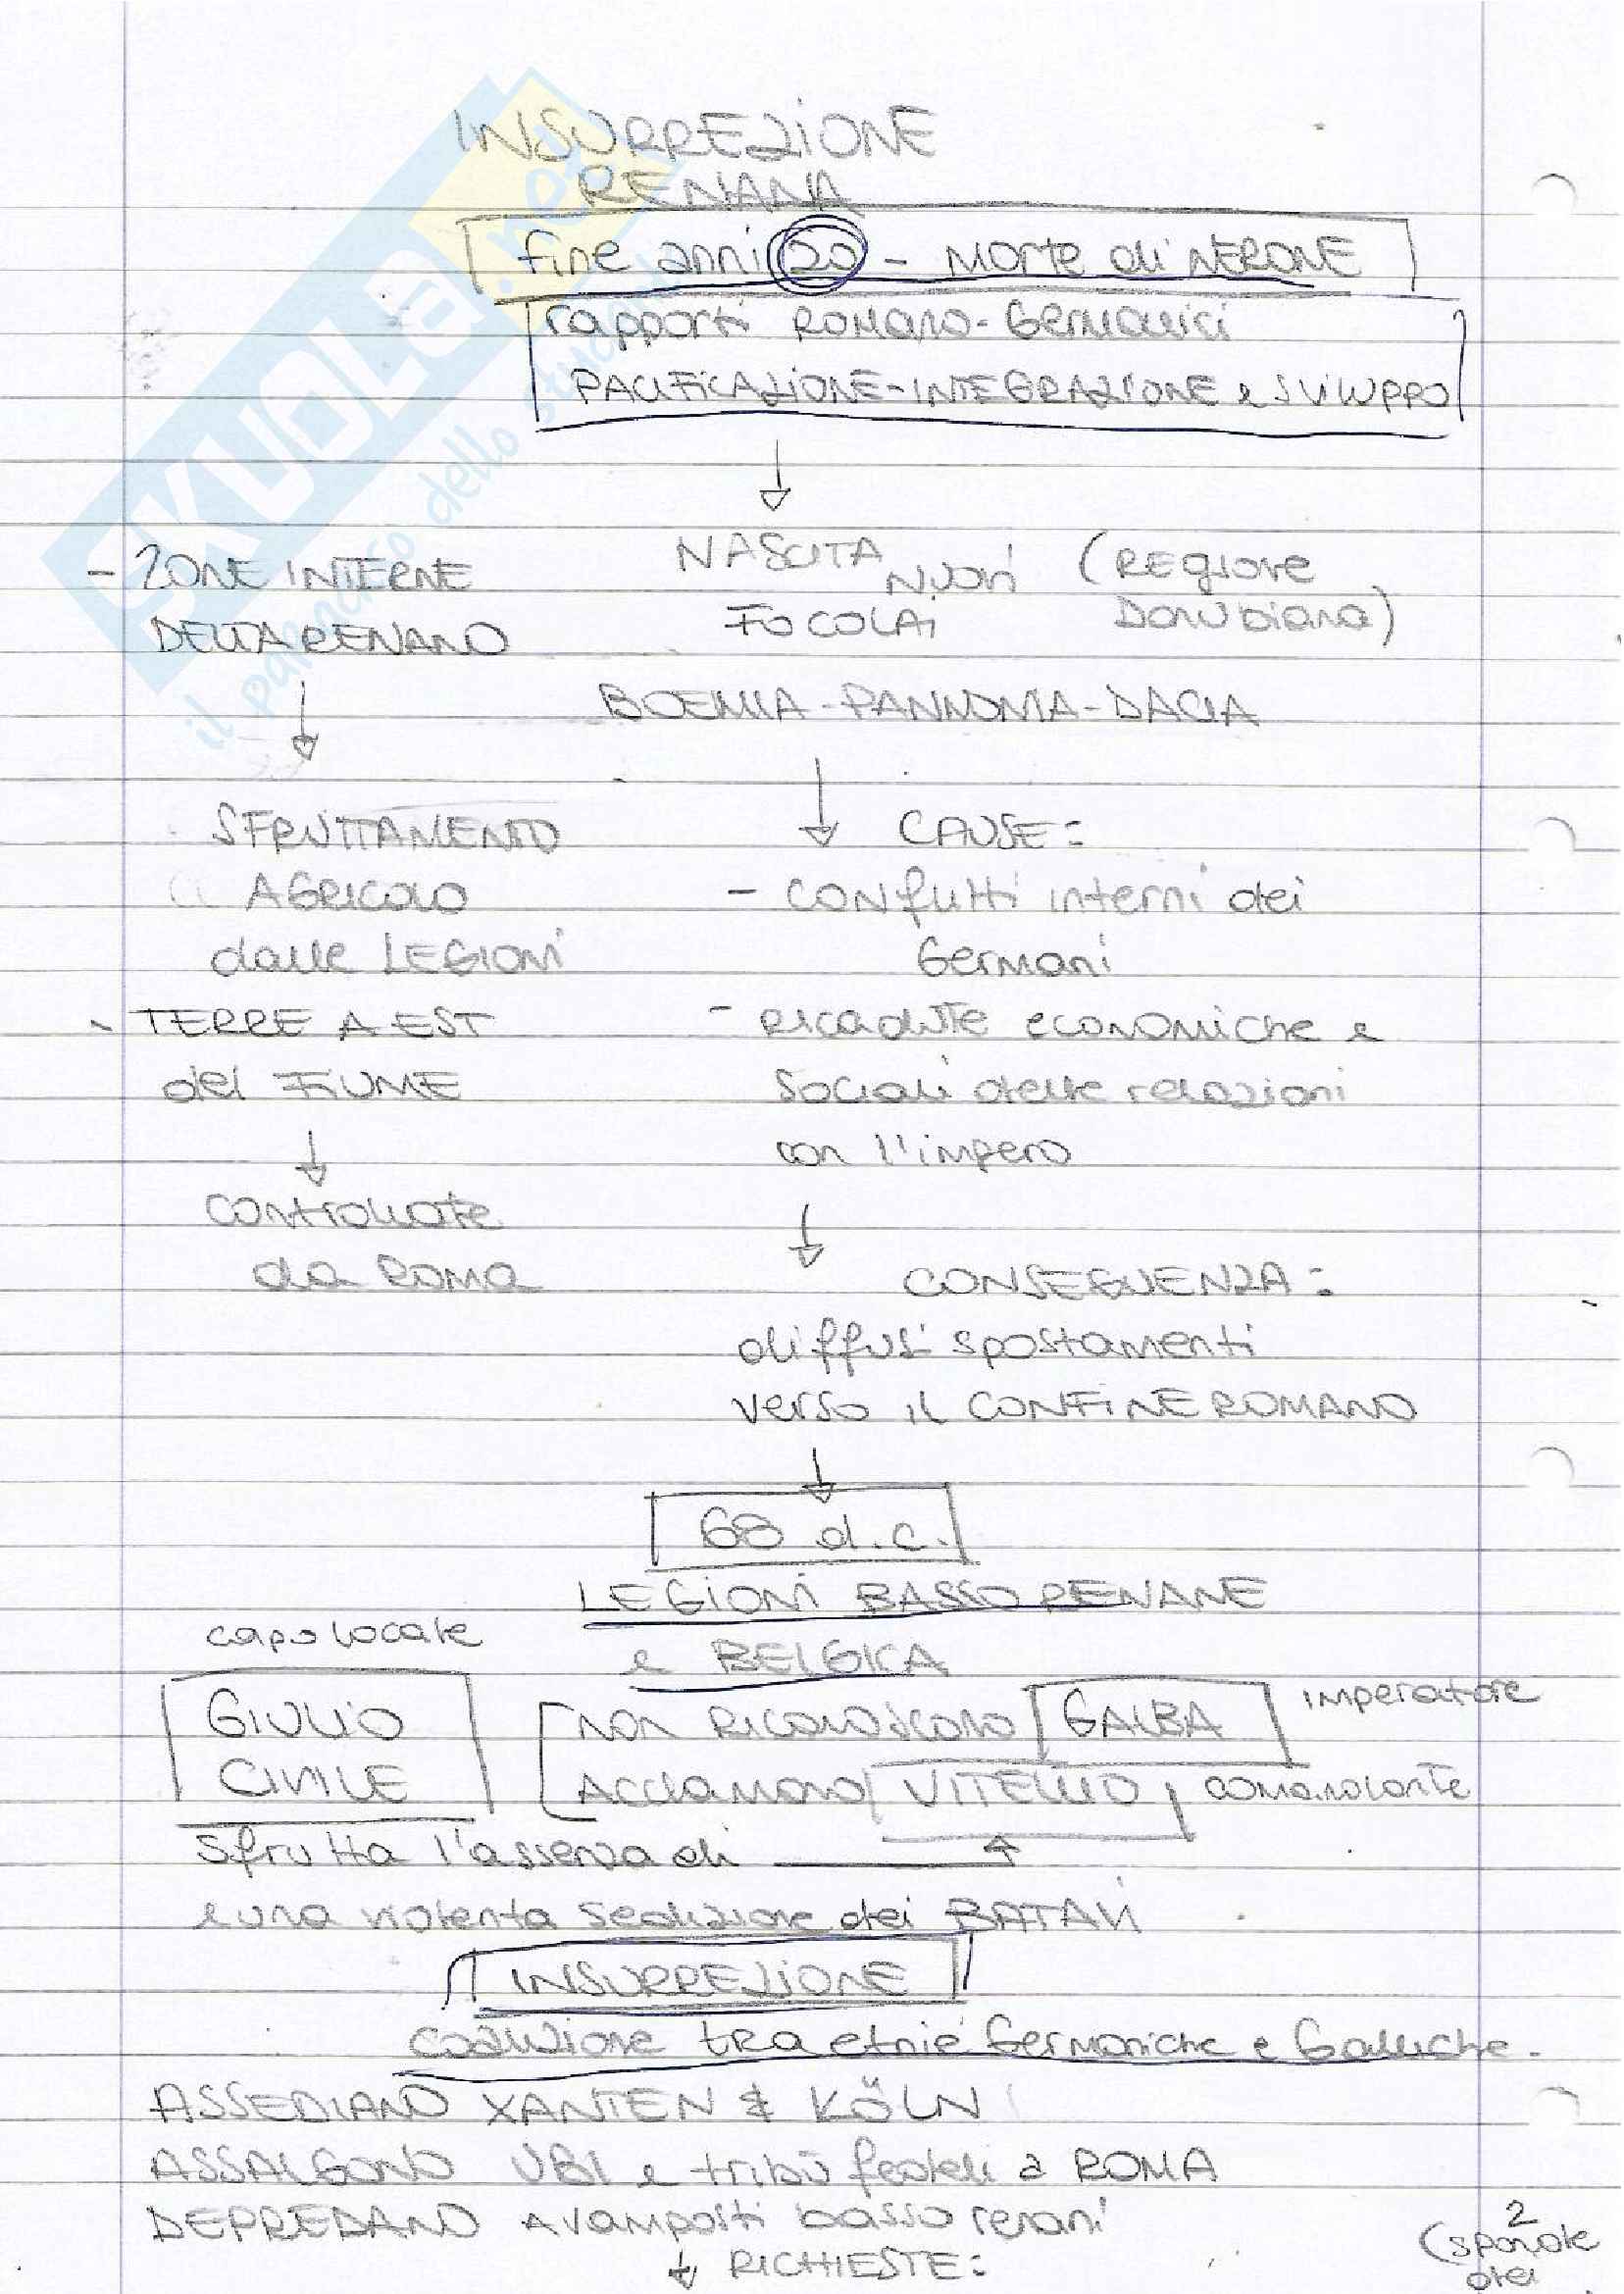 INSURREZIONE
RENANA
fine anni 20 - MORTE di NERONE
rapporti ROMANO-GERMANICI
PACIFICAZIONE-INTEGRAZIONE e SVILUPPO
- ZONE INTERNE
DELTA RENANO
NASCITA NUOVI
FOCOLAI
(REGIONE
DANUBIANA)
BOEMIA - PANNONIA - DACIA
SFRUTTAMENTO
AGRICOLO
dalle LEGIONI
- TERRE A EST
del FIUME
controllate
da ROMA
CAUSE:
- CONflitti interni dei
Germani
- RICADUTE economiche e
sociali delle relazioni
con l'impero
CONSEGUENZA:
diffusi spostamenti
verso il CONFINE ROMANO
68 d.c.
LEGIONI BASSO RENANE
e BELGICA
capo locale
GIULIO
CIVILE
NON RICONOSCONO GALBA imperatore
Acclamano VITELLIO, comandante
sfrutta l'assenza di
e una violenta sedizione dei BATAVI
INSURREZIONE
coalizione tra etnie Germaniche e Galliche.
ASSEDIANO XANTEN & KÖLN
ASSALGONO UBI e tribù fedeli a ROMA
DEPREDANO avamposti basso renani
RICHIESTE:
2
(sponde
dei
SKUOLA.net
il paradiso dello studente